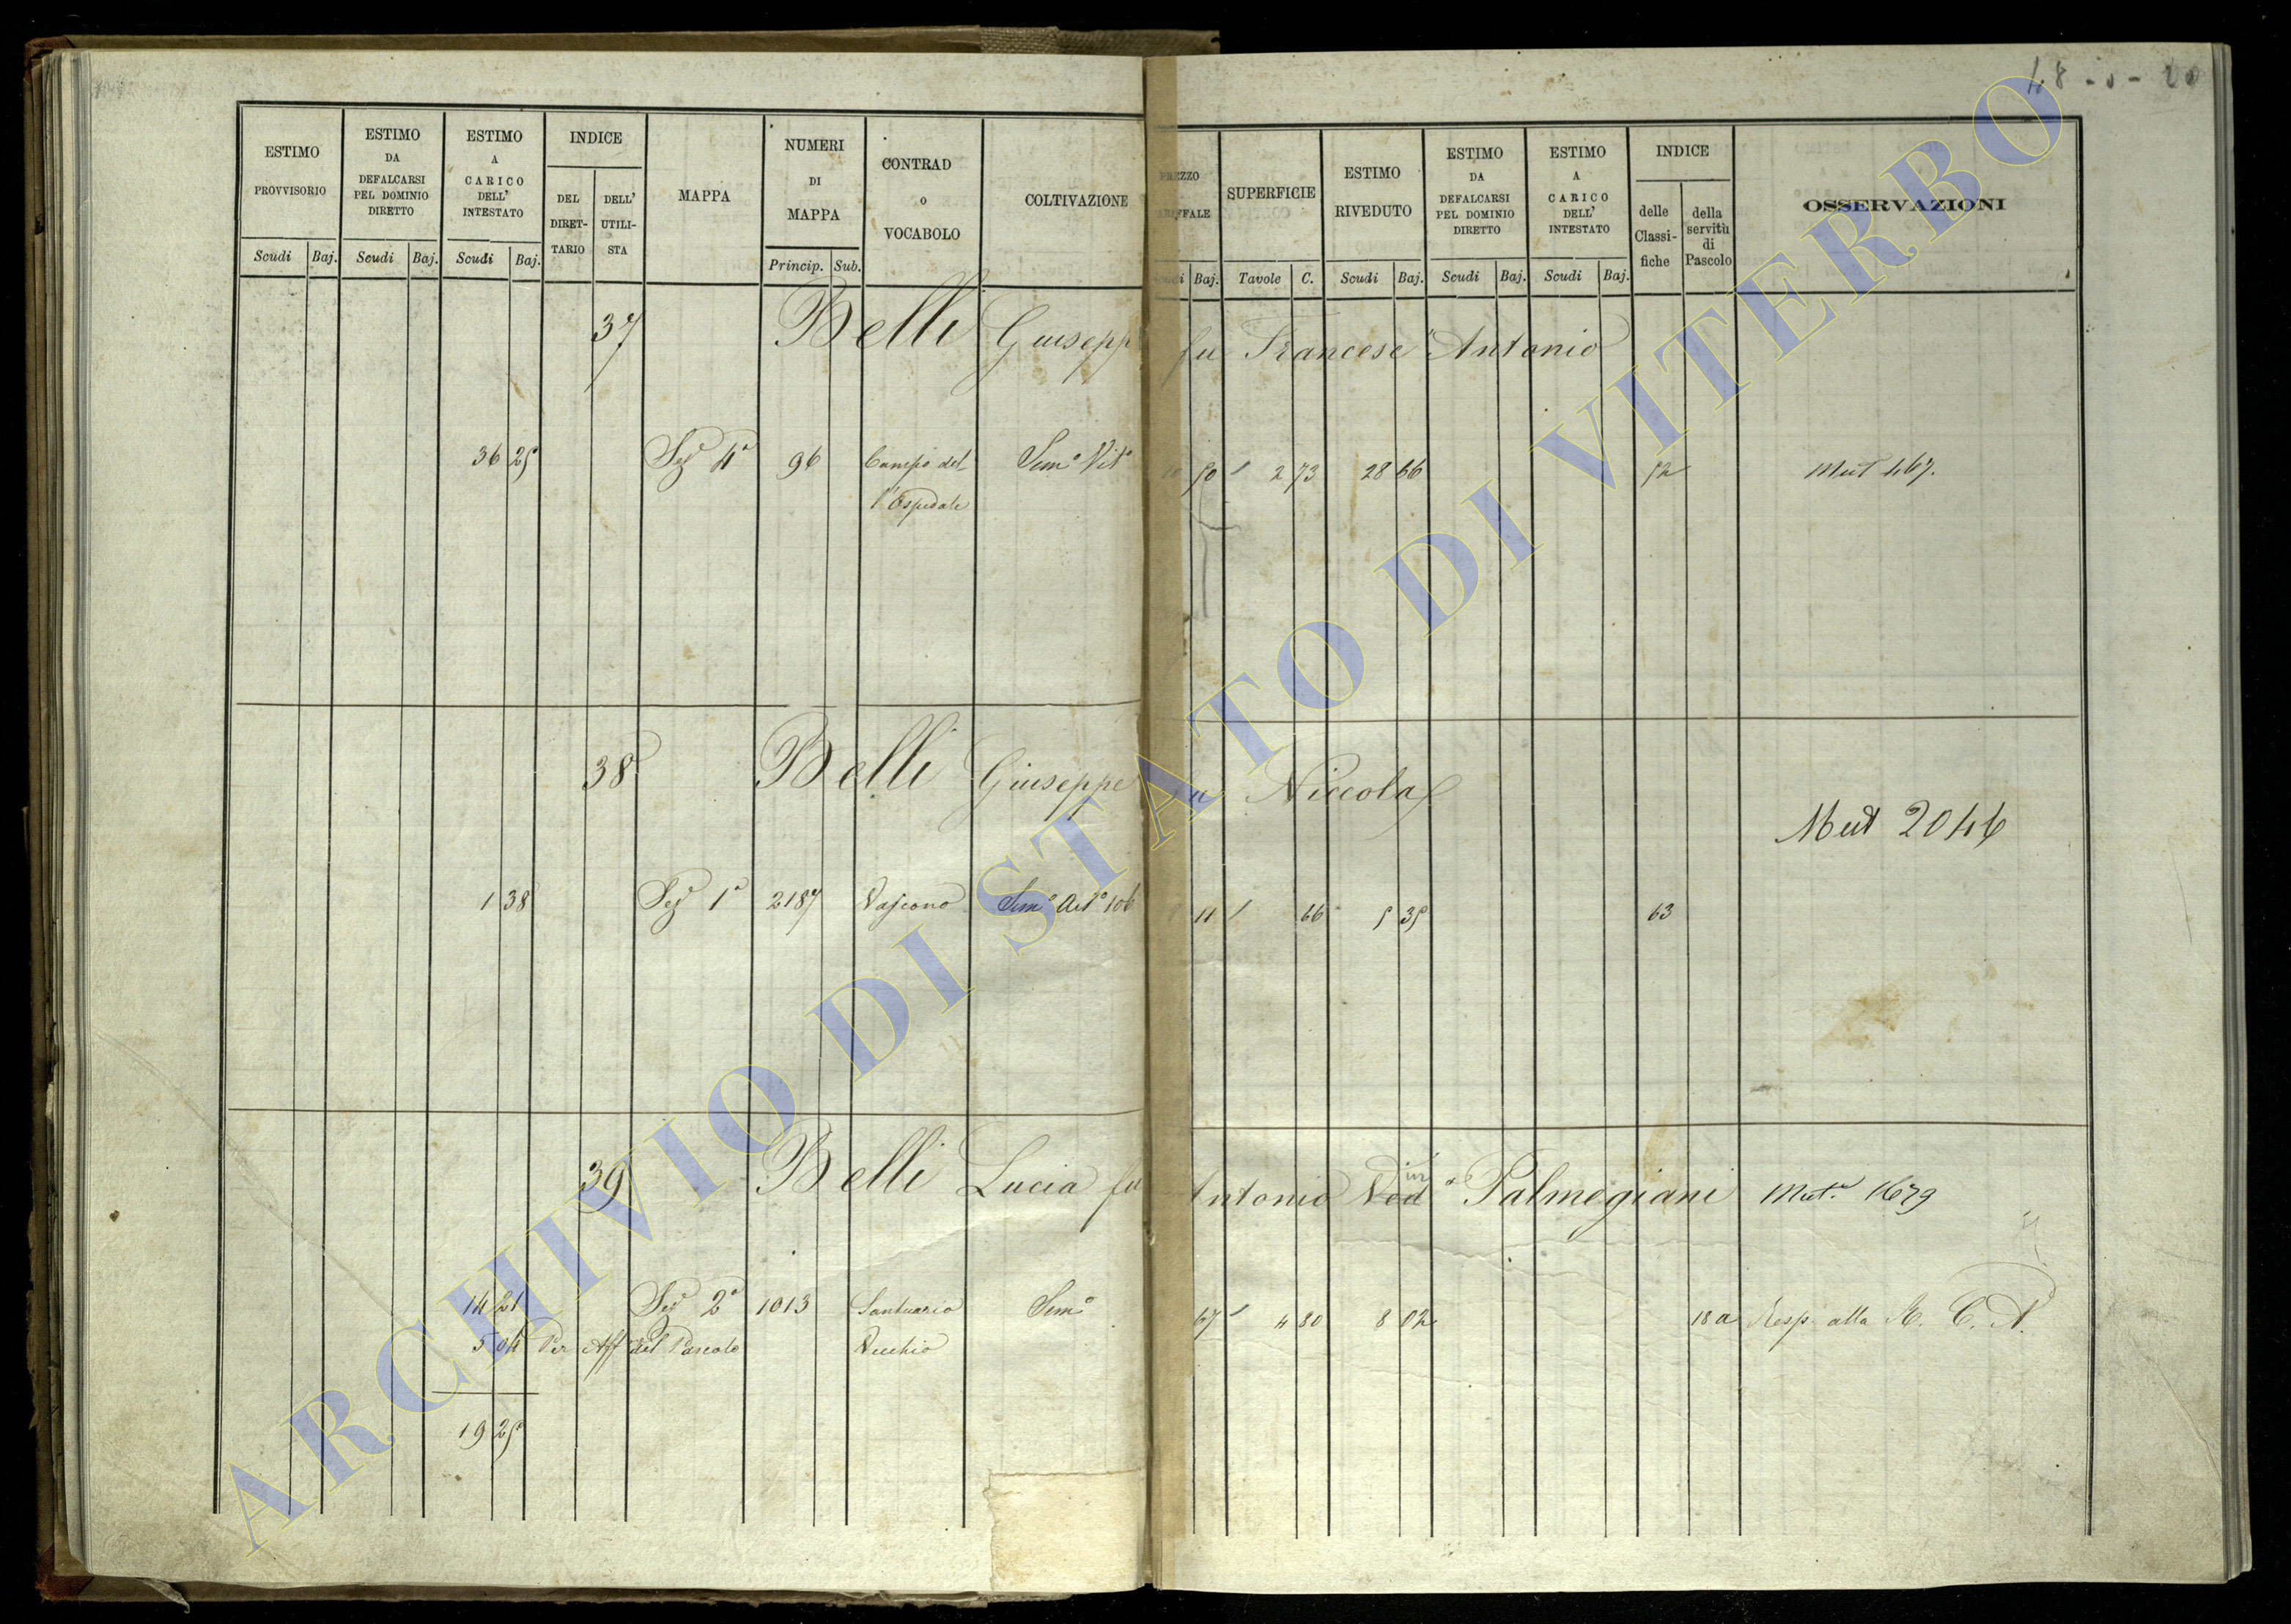 ESTIMO PROVVISORIO Scudi Baj.
ESTIMO DA DEFALCARSI PEL DOMINIO DIRETTO Scudi Baj.
ESTIMO A CARICO DELL' INTESTATO Scudi Baj.
INDICE DEL DIRET-TARIO DELL' UTILI-STA
MAPPA
NUMERI DI MAPPA Princip. Sub.
CONTRAD o VOCABOLO
COLTIVAZIONE
SUPERFICIE Tavole C.
ESTIMO RIVEDUTO Scudi Baj.
ESTIMO DA DEFALCARSI PEL DOMINIO DIRETTO Scudi Baj.
ESTIMO A CARICO DELL' INTESTATO Scudi Baj.
INDICE delle Classi-fiche della servitù di Pascolo
OSSERVAZIONI
37 Belli Giusepp fu Francesc Antonio
36 25 Sez 4a 96 Campo del Semo Vito 50 2 73 28 66 52 Mut 467.
l'Ospedale
38 Belli Giuseppe fu Niccola
Mut 2046
1 38 Sez 1a 2187 Vascono Semo Arto 106 11 66 5 35 63
in
39 Belli Lucia fu Antonio Ved a Palmegiani Mut. 1679
14 21 Sez 2a 1013 Santuario Semo 67 4 80 8 02 18 a Resp alla R. C. A.
5 04 Per Aff del Pascolo Vecchio
19 25
ARCHIVIO DI STATO DI VITERBO